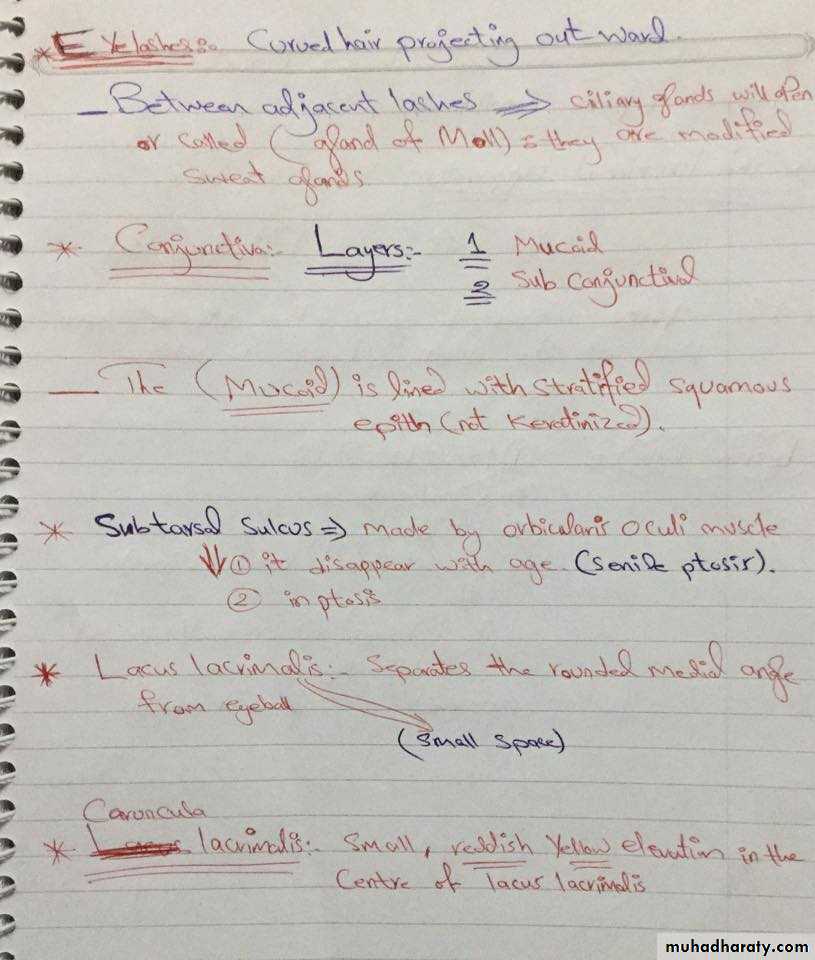 * Eyelashes:- Curved hair projecting out ward.
- Between adjacent lashes ⇒ ciliary glands will open
or called (gland of Moll) = they are modified
sweat glands
* Conjunctiva:- Layers:- 1 Mucoid
2 Sub Conjunctival
- The (Mucoid) is lined with stratified squamous
epith (not Keratinized).
* Subtarsal Sulcus ⇒ made by orbicularis oculi muscle
① it disappear with age (senile ptosis).
② in ptosis
* Lacus lacrimalis:- Separates the rounded medial angle
from eyeball
(small space)
Caruncula
* lacrimalis:- Small, reddish Yellow elevation in the
Centre of lacus lacrimalis
muhadharaty.com